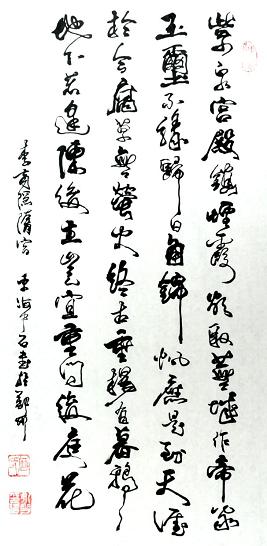 紫泉宮殿鎖煙霞欲取蕪城作帝家
玉璽不緣歸日角錦帆應是到天涯
於今腐草無螢火終古垂楊有暮鴉
地下若逢陳後主豈宜重問後庭花
李商隱隋宮 書於鄭州